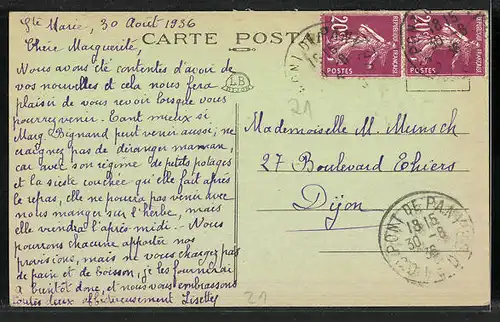 Ste Marie, 30 Août 1936
Chere Marguerite,
CARTE POSTALE
Nous avons été contentes d'avoir de
vos nouvelles et cela nous fera
plaisir de vous revoir lorsque vous
pourrez venir. Tant mieux si
Marg. Bignand peut venir aussi; ne
craignez pas de déranger maman,
car avec son régime de petits potages
et la sieste couchée qu'elle fait après
le repas, elle ne pourra pas venir avec
nous manger sur l'herbe, mais
elle viendra l'après-midi. Nous
pourrons chacune apporter nos
provisions, mais ne vous chargez pas
de pain et de boisson, je les fournirai
à bientôt donc, et nous vous embrassons
toutes deux affectueusement Lisette
LB
20c
POSTES
20c
POSTES
21
Mademoiselle M. Munsch
27 Boulevard Thiers
Dijon
PONT DE PANY
18 15
30 -8
36
COTE D'OR
21